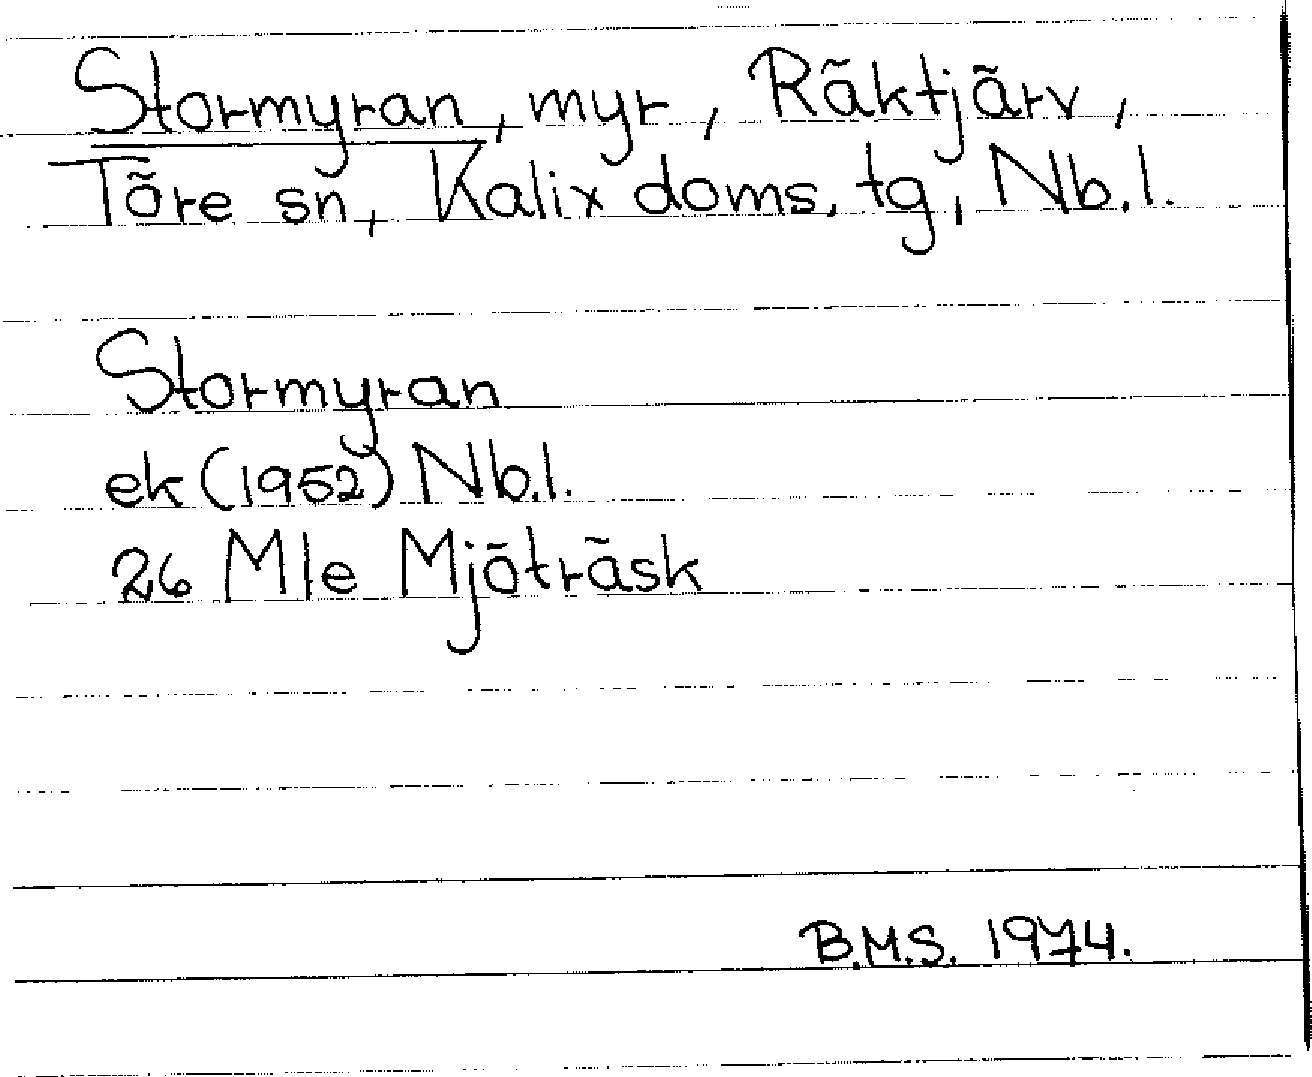 Stormyran, myr, Räktjärv,
Töre sn, Kalix doms. tg, Nb.l.
Stormyran
ek (1952) Nb.l.
26 Mle Mjöträsk
B.M.S. 1974.